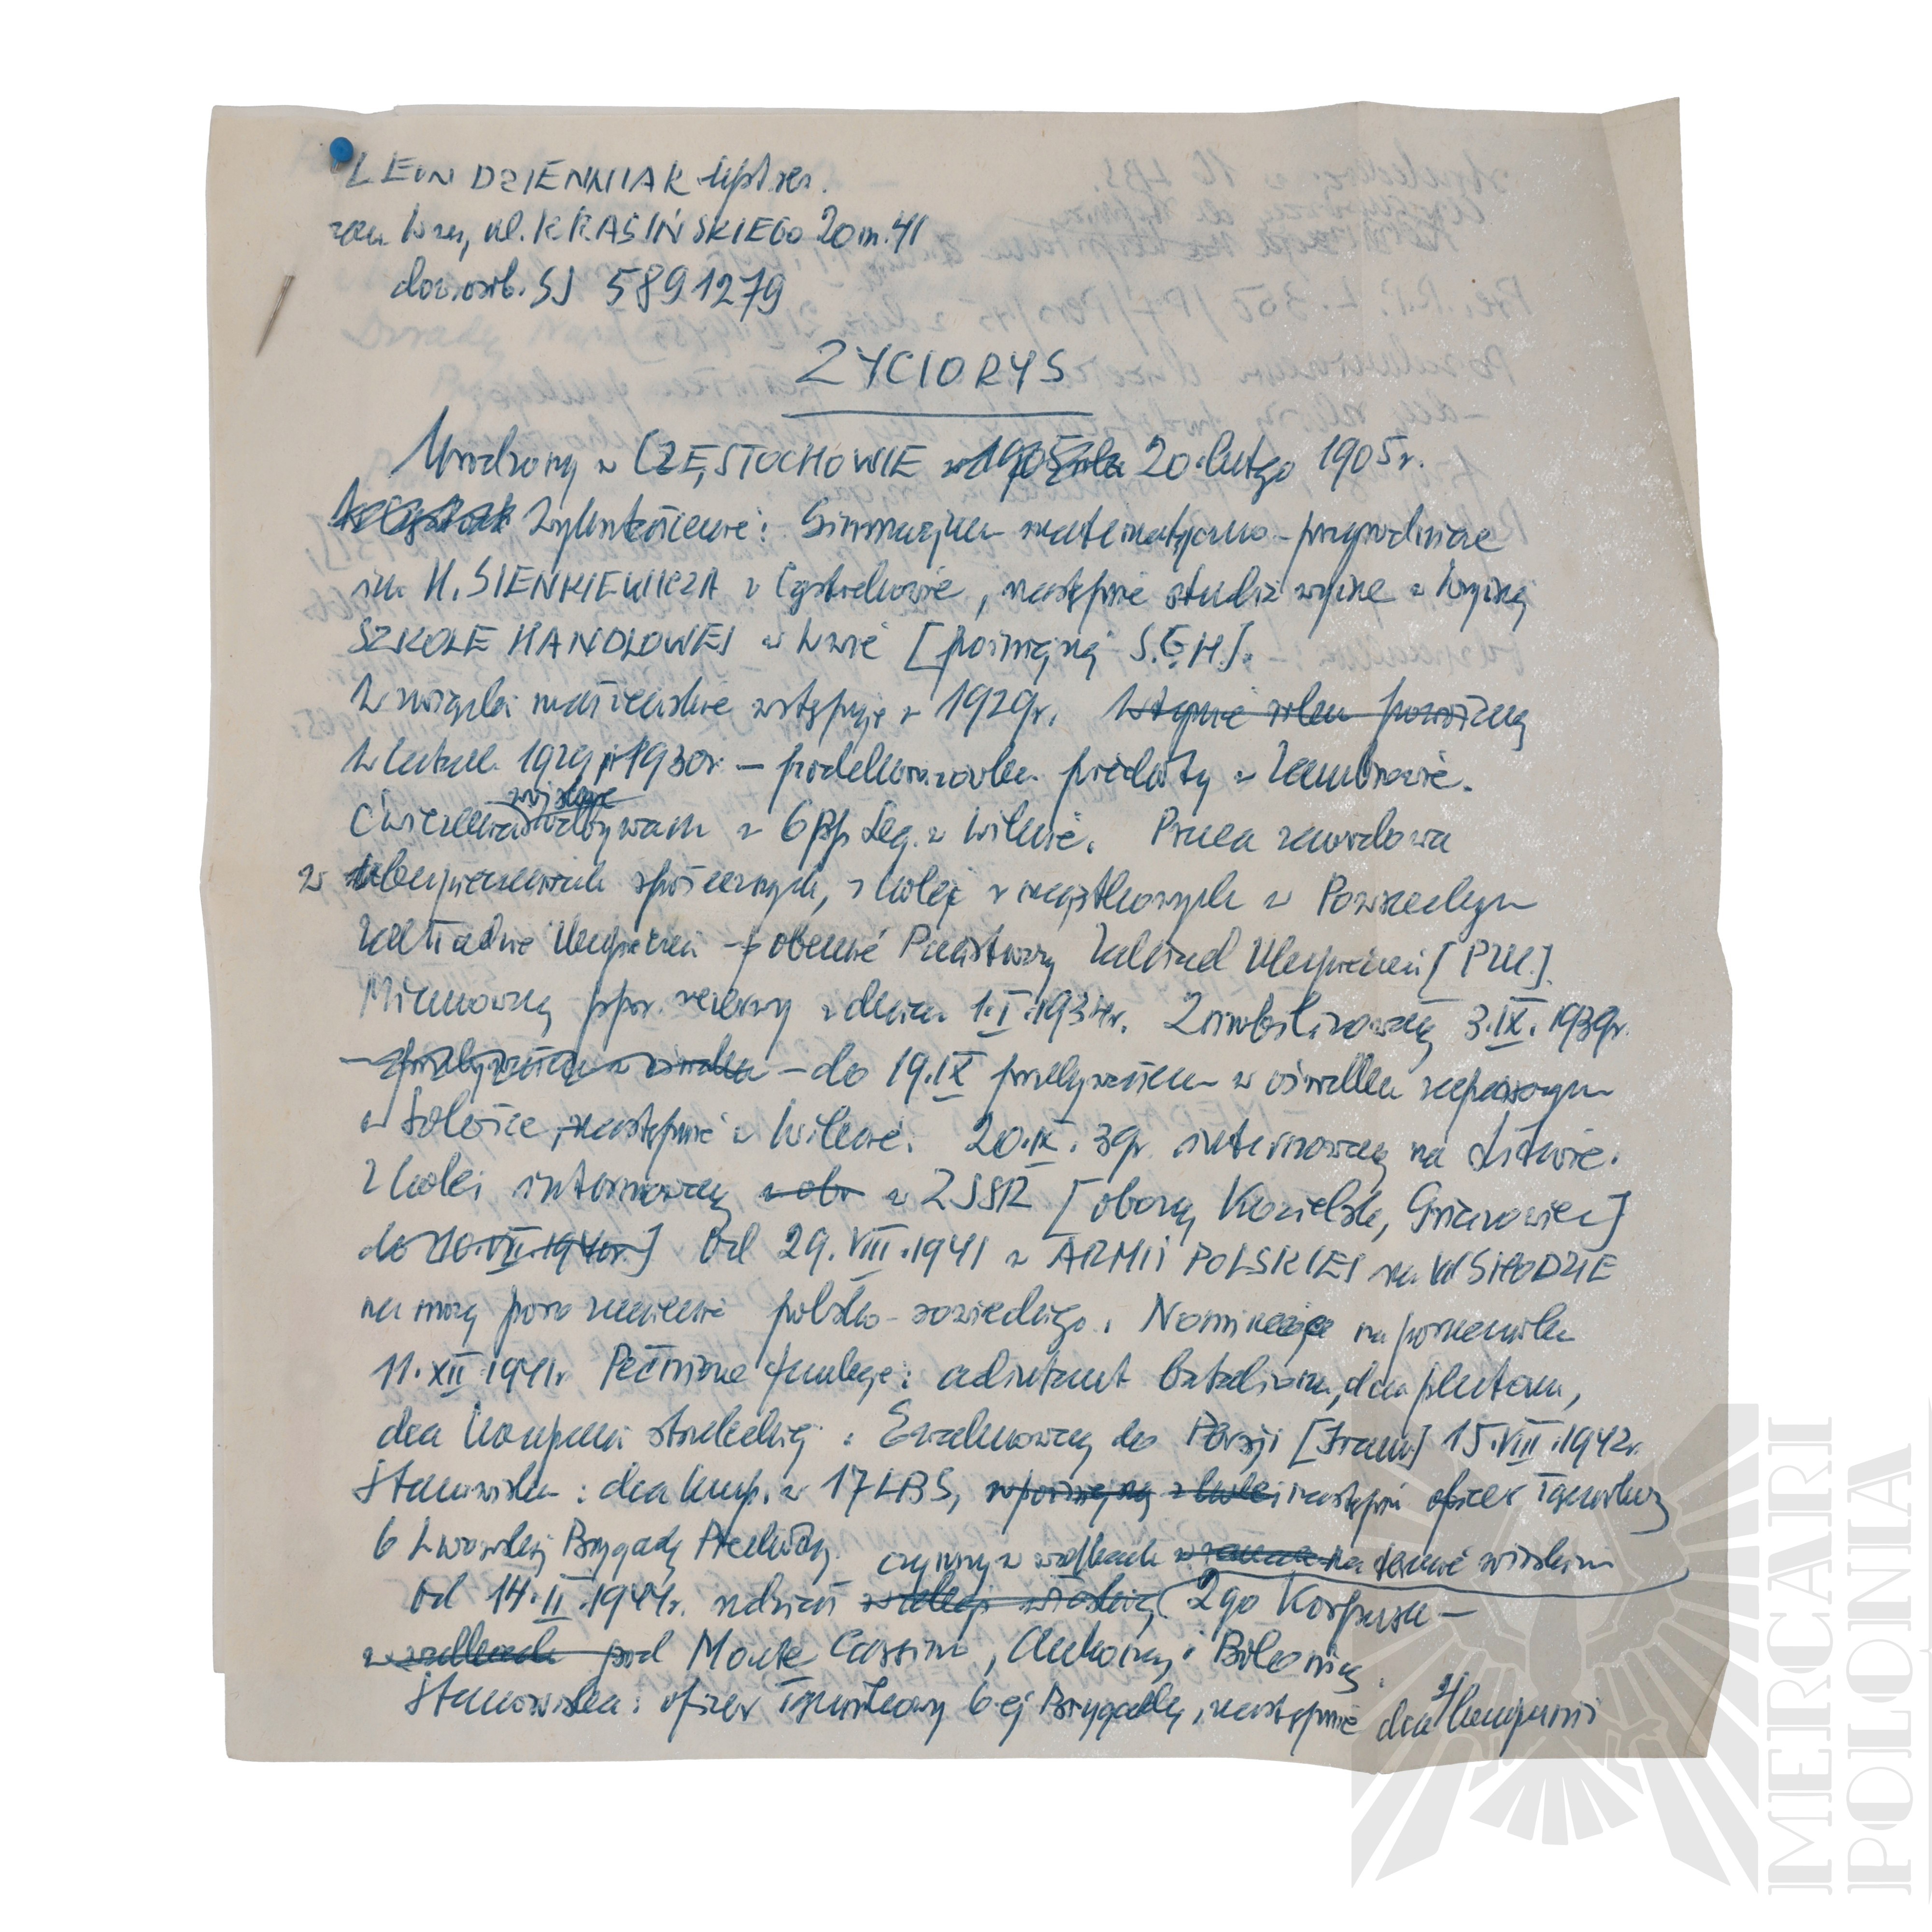 LEON DZIENNIAK kpt rez.
zam W-wa, ul. KRASIŃSKIEGO 20 m. 41
dow. osob. SJ 5891279
ŻYCIORYS
Urodzony w CZĘSTOCHOWIE 20 lutego 1905 r.
Wykształcenie: Gimnazjum matematyczno-przyrodnicze
im H. SIENKIEWICZA w Częstochowie, następnie studia wyższe w Wyższej
SZKOLE HANDLOWEJ w W-wie [późniejszej S.G.H].
W związki małżeńskie wstępuję w 1929 r. Wstępnie
W latach 1929 i 1930 r. — podchorążówka piechoty w Zambrowie.
Ćwiczenia odbywam w 6 pp Leg. w Wilnie. Praca zawodowa
w ubezpieczeniach społecznych, z kolei w majątkowych w Powszechnym
Zakładzie Ubezpieczeń — obecnie Państwowy Zakład Ubezpieczeń [PZU.]
Mianowany ppor. rezerwy z dniem 1.I.1934r. Zmobilizowany 3.IX.1939r.
— do 19.IX przebywałem w ośrodku zapasowym
w Sołeczniкach, następnie w Wilnie. 20.IX.39r. internowany na Litwie.
Z kolei internowany w ZSSR [obozy Kozielsk, Griazowiec]
do 10.VII.1941r.] Od 29.VIII.1941 w ARMII POLSKIEJ na WSCHODZIE
na mocy porozumienia polsko-sowieckiego. Nominacja na porucznika
11.XII.1941r Pełnione funkcje: adiutant batalionu, dca plutonu,
dca kompanii strzeleckiej. Ewakuowany do Persji [Iranu] 15.VIII.1942r.
Stanowiska: dca komp. w 17 LBS, z kolei następnie oficer łącznikowy
6 Lwowskiej Brygady Piechoty. czynny w walkach na terenie włoskim
Od 14.II.1944r. udział 2go Korpusu —
w walkach pod Monte Cassino, Ankoną i Bolonią.
Stanowiska: oficer łącznikowy 6-ej Brygady, następnie dca kompanii
MERCARI
POLONIA